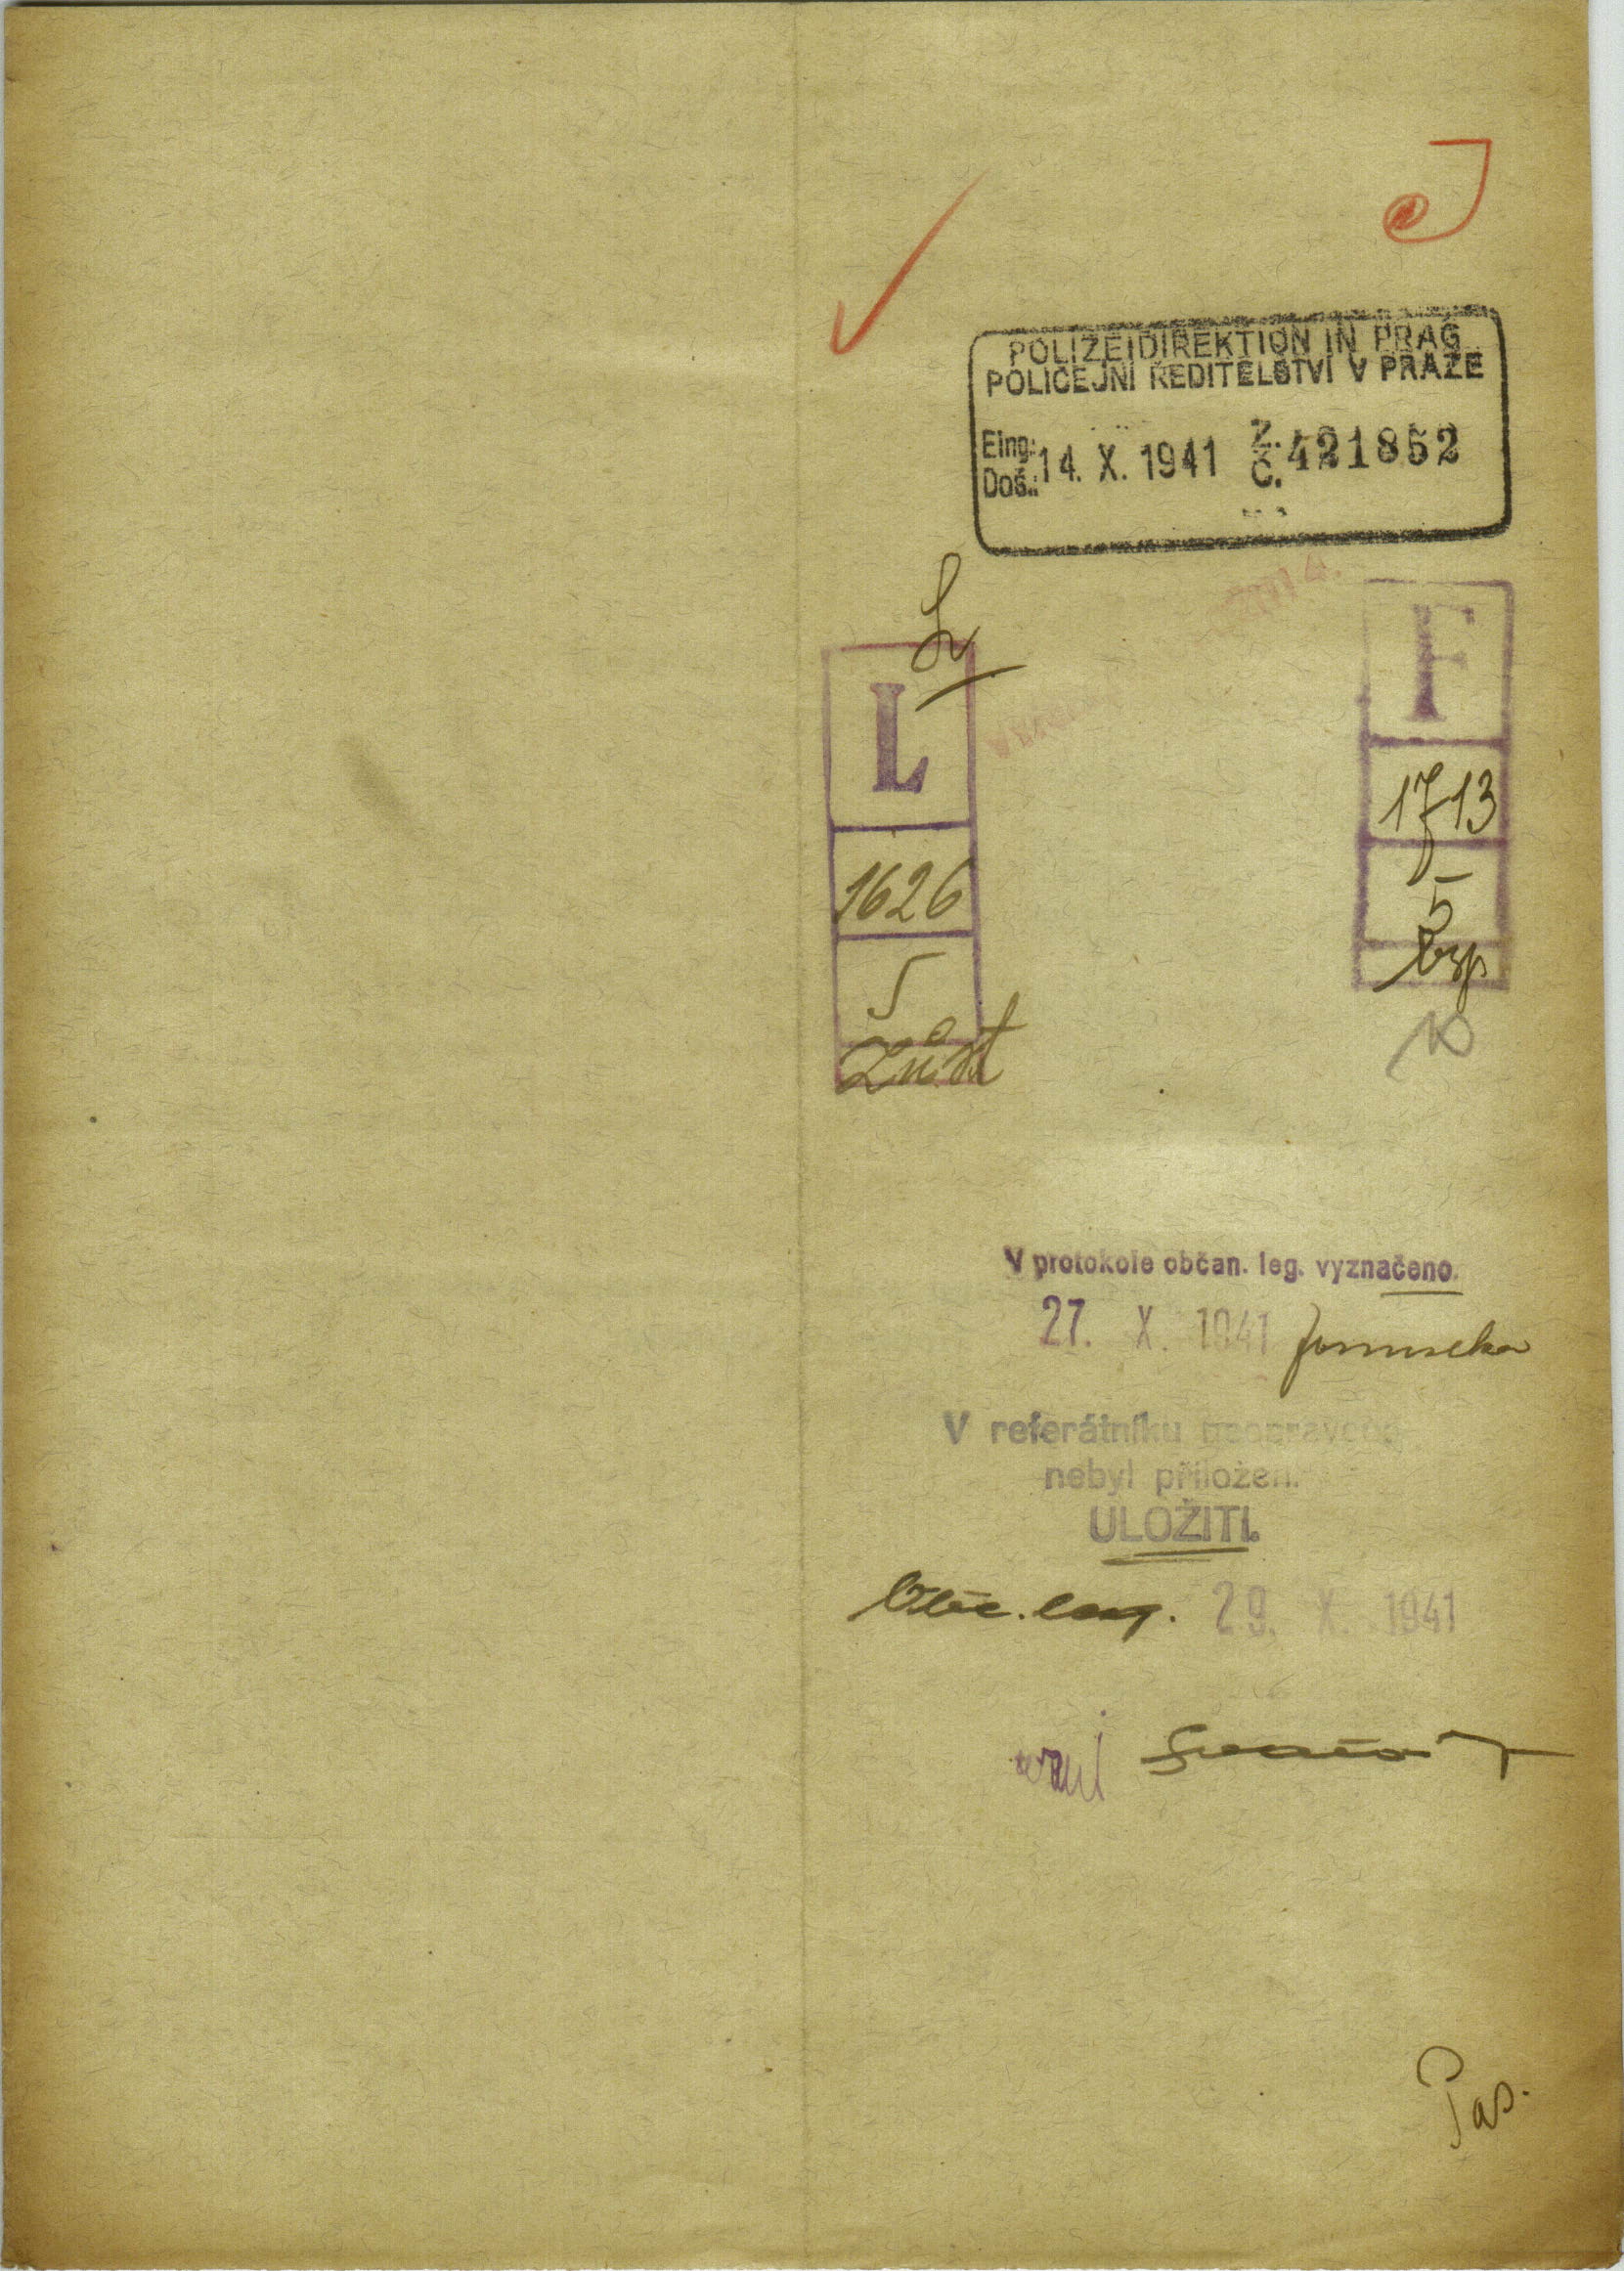 POLIZEIDIREKTION IN PRAG
POLICEJNÍ ŘEDITELSTVÍ V PRAZE
Eing: Došl: 14. X. 1941 Z. Č. 421852
L
F
1713
1626
5
5
Zůst
V protokole občan. leg. vyznačeno.
27. X. 1941
V referátníku
nebyl přiložen.
ULOŽITI.
Obč. leg. 29. X. 1941
Pas.